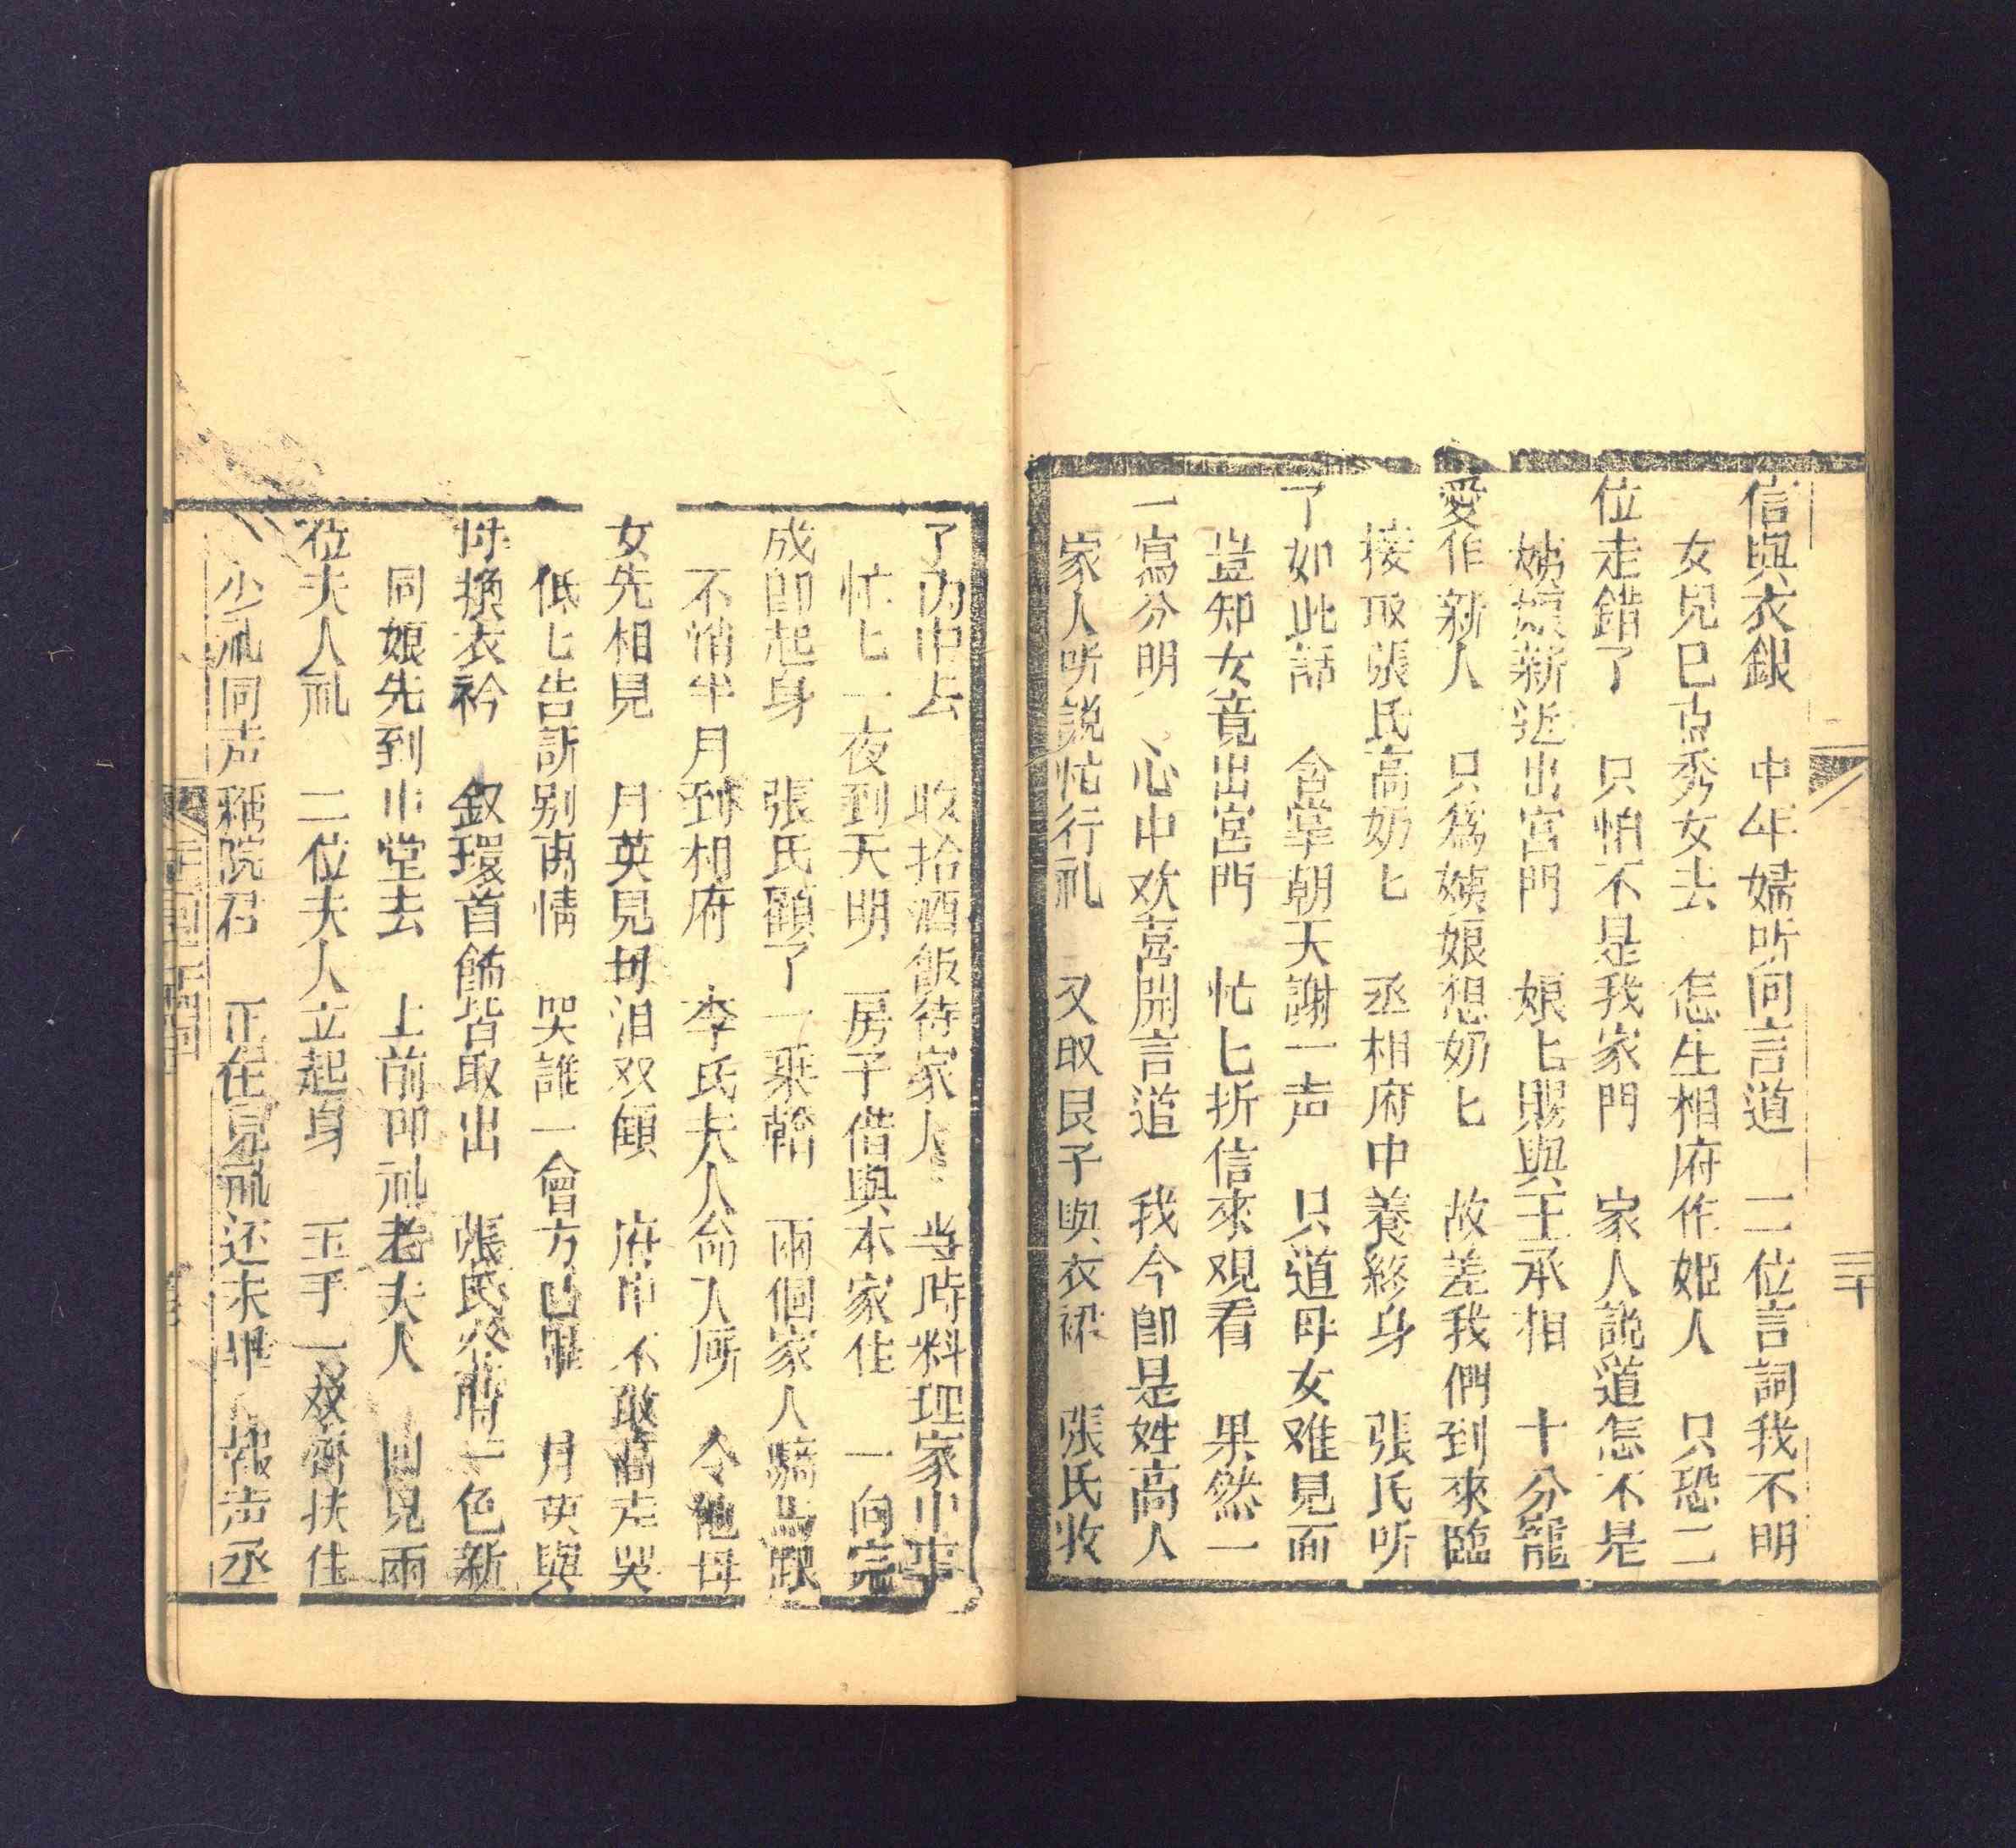 信與衣銀　中年婦听问言道　二位言詞我不明
女兒已点秀女去　怎生相府作姬人　只恐二
位走錯了　只怕不是我家門　家人說道怎不是
姨娘新近出宮門　娘匕賜與王承相　十分寵
愛作新人　只為姨娘想奶匕　故差我們到來臨
接取張氏高奶匕　丞相府中養終身　張氏听
了如此話　合掌朝天謝一声　只道母女难見面
豈知女竟出宮門　忙匕折信來观看　果然一
一寫分明　心中欢喜開言道　我今卽是姓高人
家人听說忙行礼　又取艮子與衣裙　張氏收
三十
了內中去　收拾酒飯待家人　当時料理家中事
忙匕一夜到天明　房子借與本家住　一向完
成卽起身　張氏顧了一乘轎　兩個家人騎馬跟
不消半月到相府　李氏夫人命入厛　令他母
女先相見　月英見母泪双傾　府中不敢高声哭
低匕告訴别离情　哭誰一會方已畢　月英與
母換衣衿　釵環首飾皆取出　張氏穿帶一色新
同娘先到中堂去　上前叩礼老夫人　回見兩
位夫人礼　二位夫人立起身　玉手一双齊扶住
少礼同声稱院君　正在見礼还未畢　報声丞